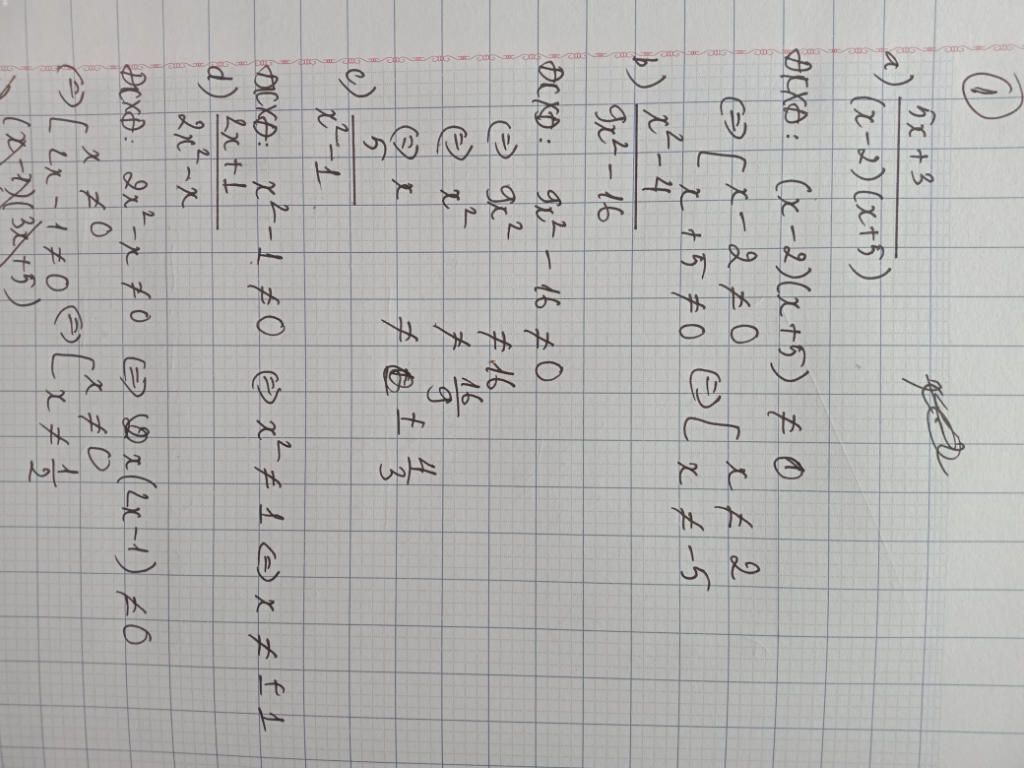 ①
a) (5x+3)/((x-2)(x+5))
ĐKXĐ: (x-2)(x+5) ≠ 0
⇔ [ x - 2 ≠ 0
[ x + 5 ≠ 0 ⇔ [ x ≠ 2
[ x ≠ -5
b) (x²-4)/(9x²-16)
ĐKXĐ: 9x² - 16 ≠ 0
⇔ 9x² ≠ 16
⇔ x² ≠ 16/9
⇔ x ≠ ± 4/3
c) 5/(x²-1)
ĐKXĐ: x² - 1 ≠ 0 ⇔ x² ≠ 1 ⇔ x ≠ ± 1
d) (2x+1)/(2x²-x)
ĐKXĐ: 2x² - x ≠ 0 ⇔ x(2x-1) ≠ 0
⇔ [ x ≠ 0
[ 2x - 1 ≠ 0 ⇔ [ x ≠ 0
[ x ≠ 1/2
(x-1)(3x+5)